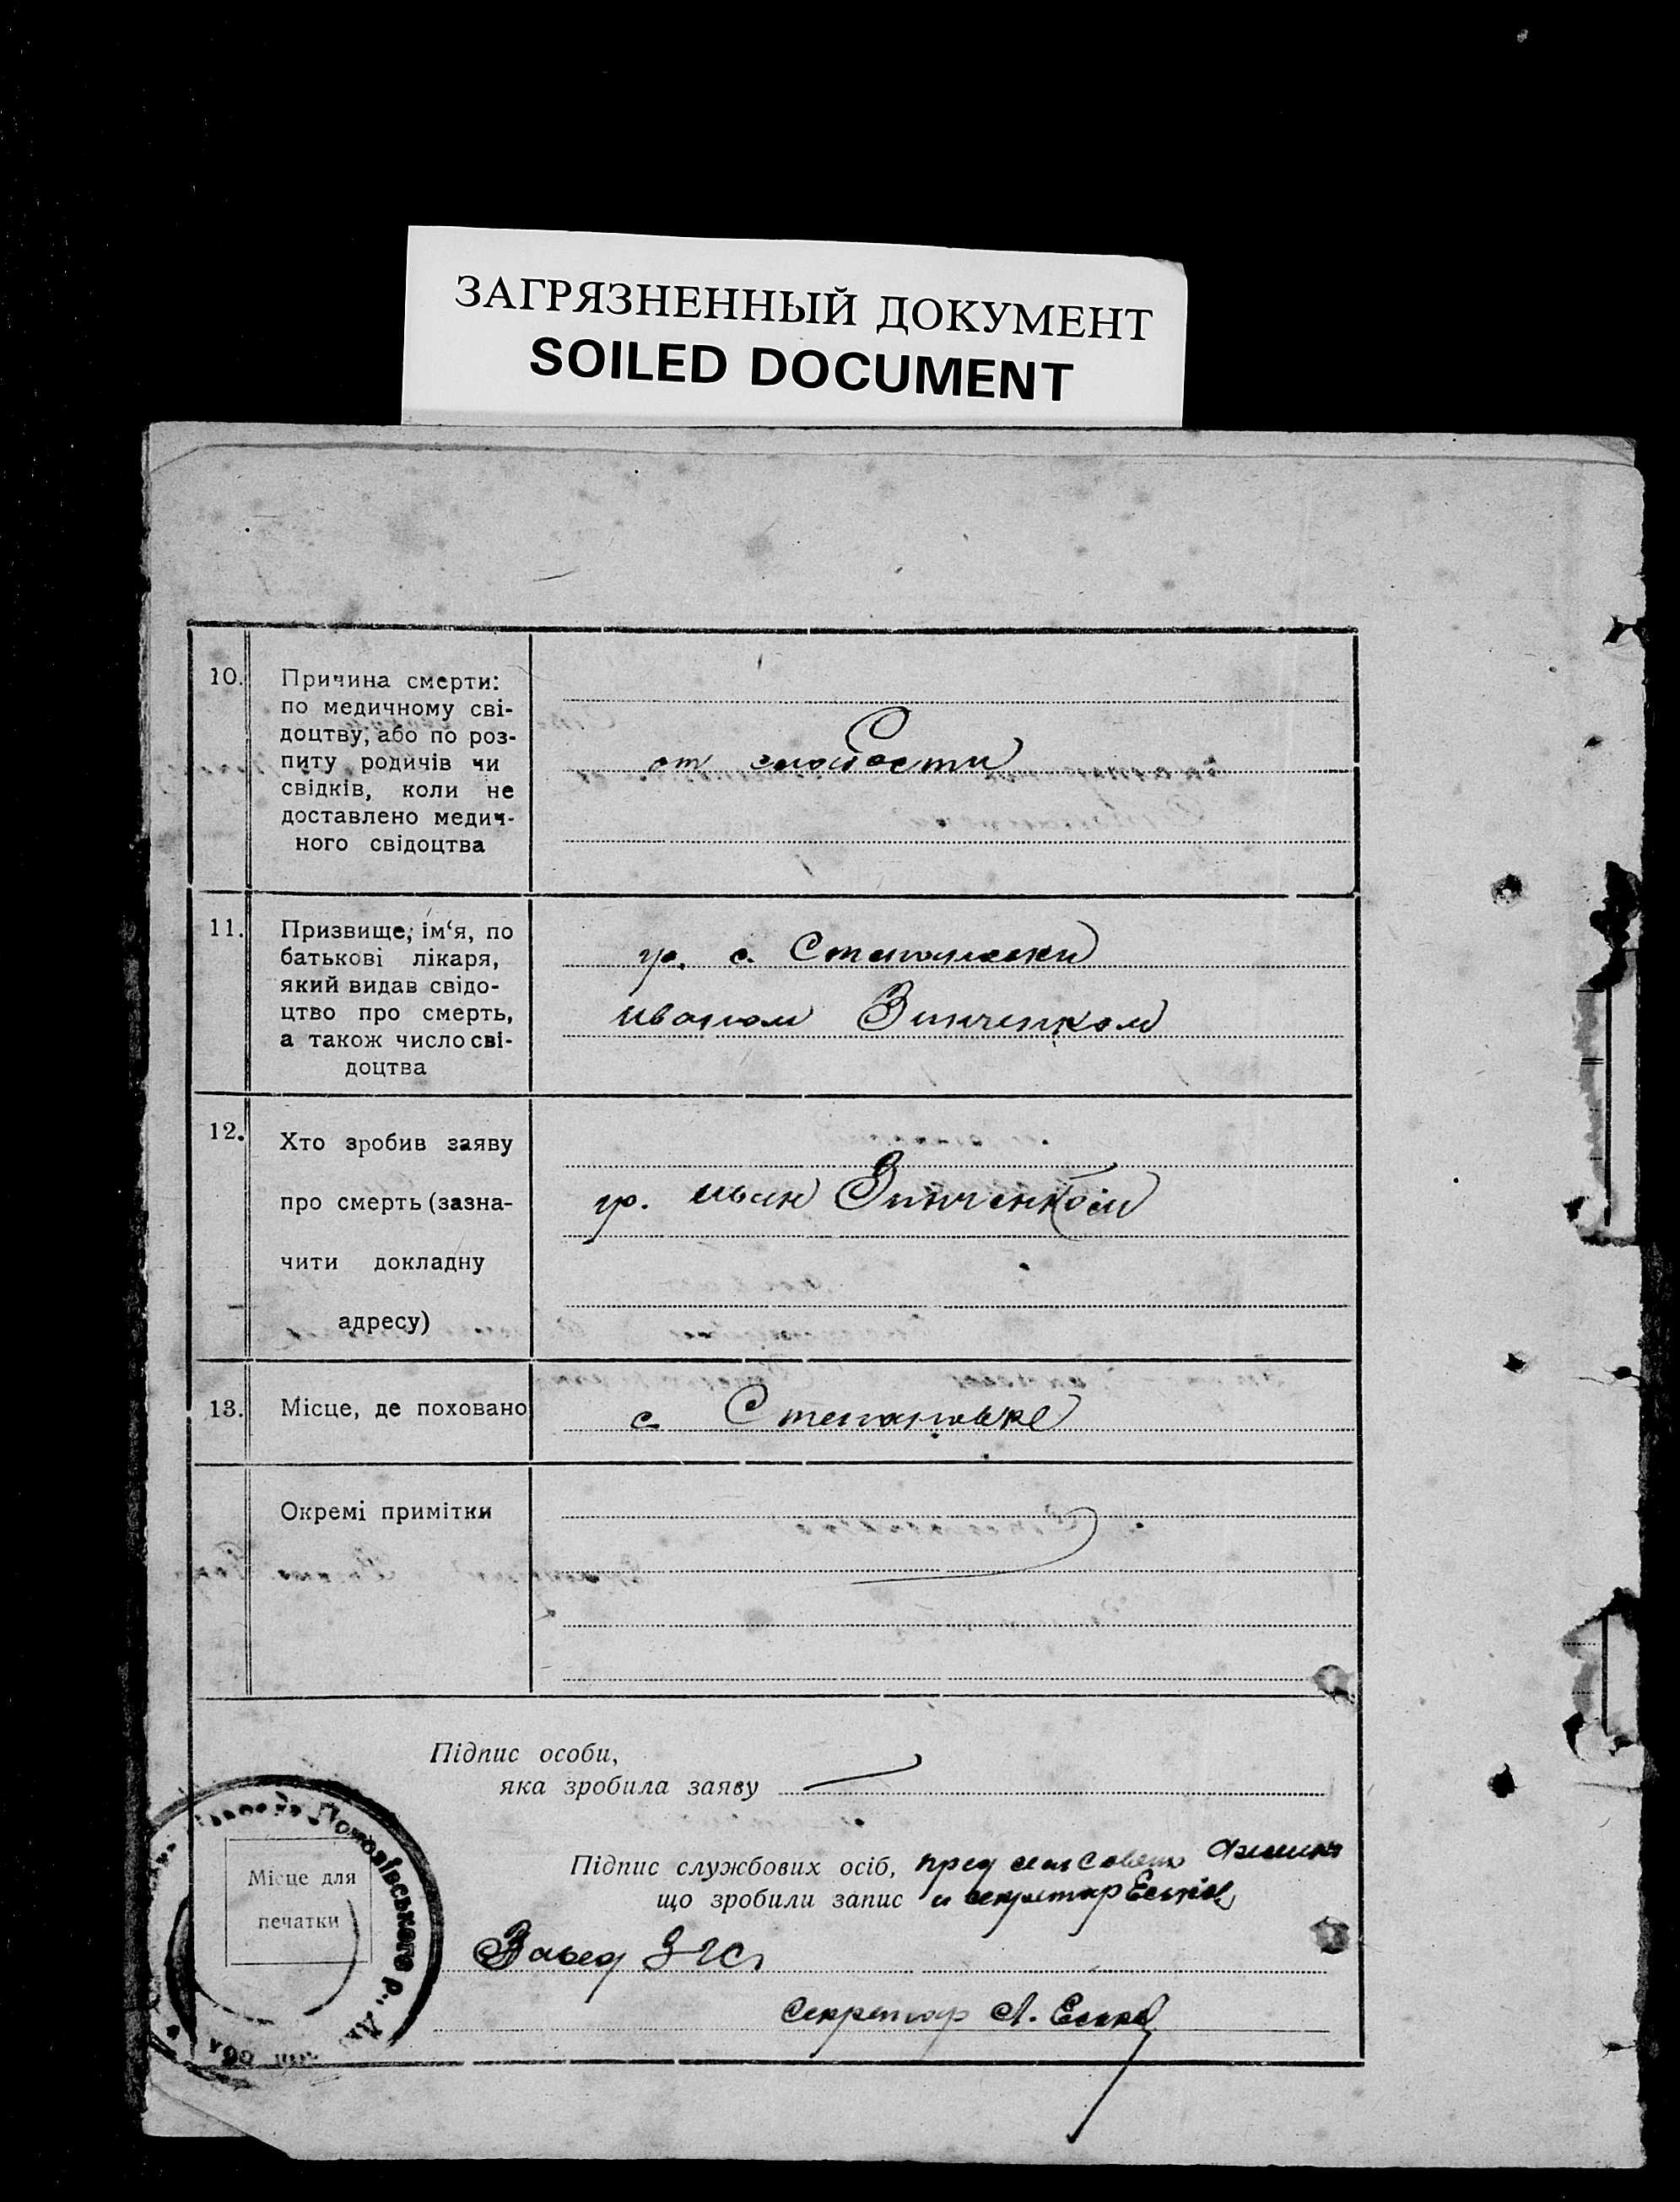 ЗАГРЯЗНЕННЫЙ ДОКУМЕНТ
SOILED DOCUMENT
10.
Причина смерти:
по медичному сві-
доцтву, або по роз-
питу родичів чи
свідків, коли не
доставлено медич-
ного свідоцтва
от слабости
11.
Призвище, ім‘я, по
батькові лікаря,
який видав свідо-
цтво про смерть,
а також число сві-
доцтва
гр. с. Степановки
Иваном Зинченком
12.
Хто зробив заяву
про смерть (зазна-
чити докладну
адресу)
гр. Иван Зинченком
13.
Місце, де поховано
с. Степановке
Окремі примітки
Підпис особи,
яка зробила заяву
Місце для
печатки
Підпис службових осіб, пред
що зробили запис и секретар
Завед
секретар